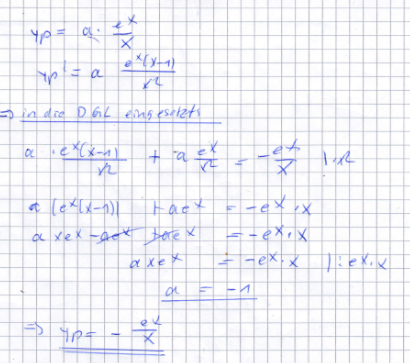 yp = a · e^x/x
yp' = a e^x(x-1)/x²
=> in die DGL eingesetzt:
a · e^x(x-1)/x² + a e^x/x² = - e^x/x | · x²
a (e^x(x-1)) + a e^x = - e^x · x
a x e^x - a e^x + a e^x = - e^x · x
a x e^x = - e^x · x | : e^x · x
a = -1
=> yp = - e^x/x